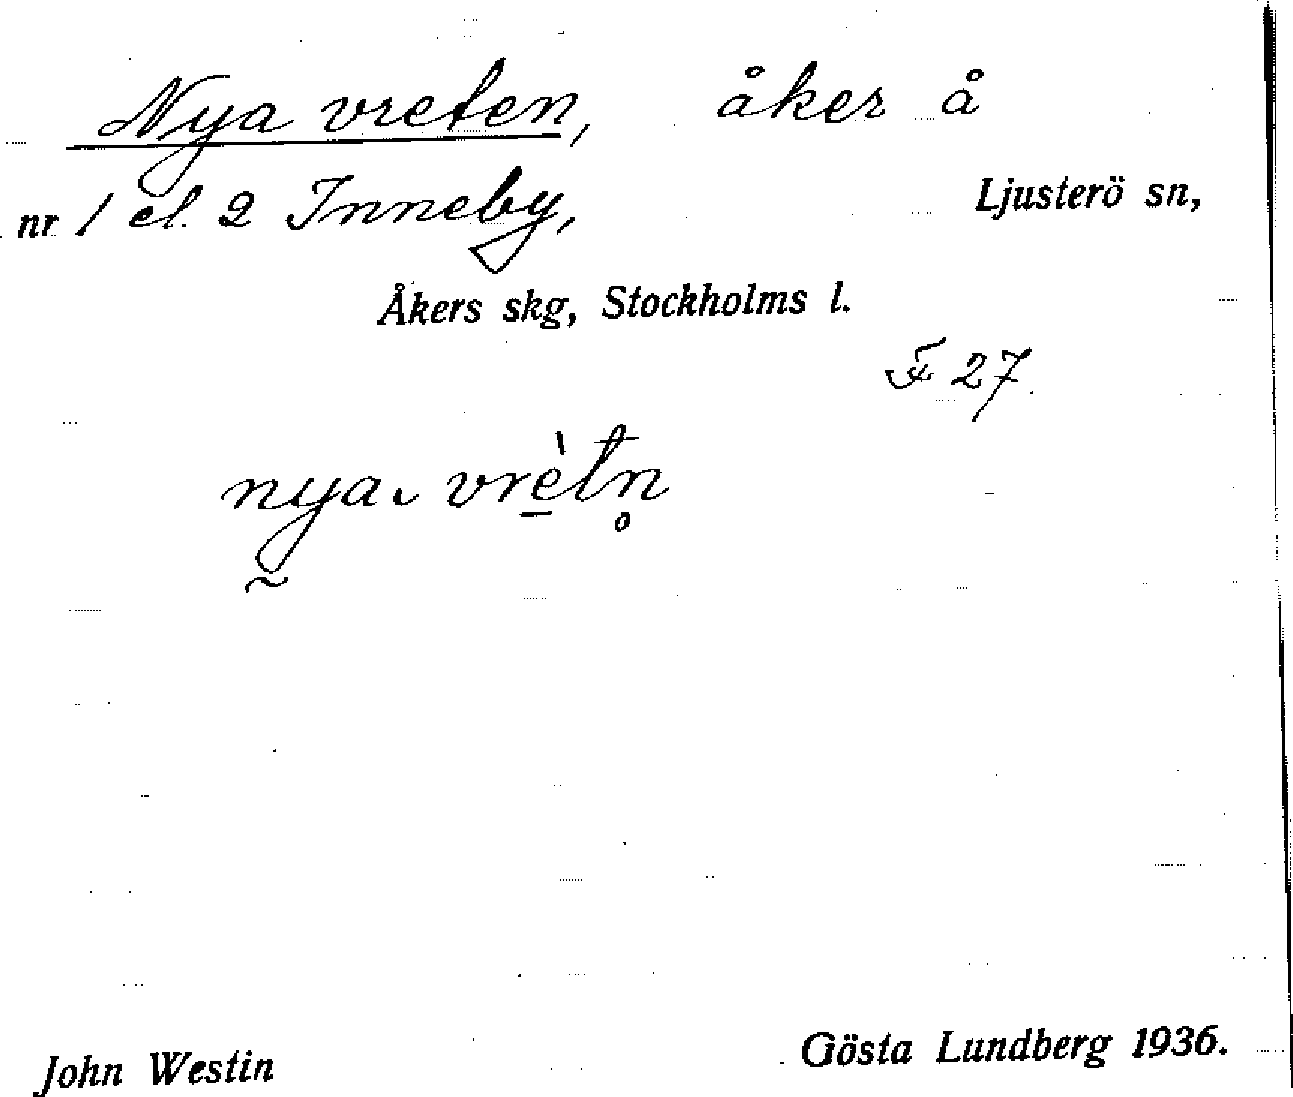 Nya vreten, åker å
nr 1 el. 2 Inneby, Ljusterö sn,
Åkers skg, Stockholms l.
F 27.
nya vrètn̥
John Westin Gösta Lundberg 1936.